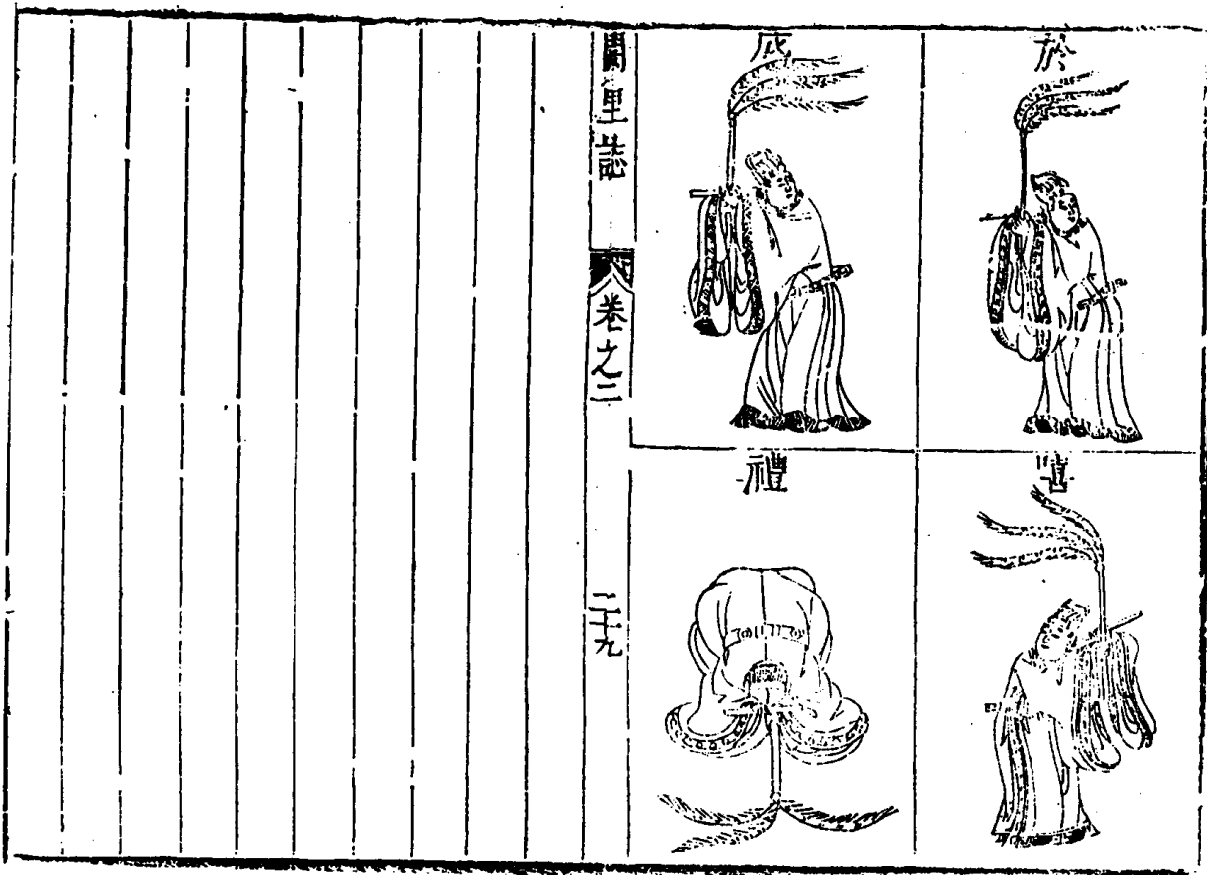 於
嘻
成
禮
闕里誌
卷之二
二十九